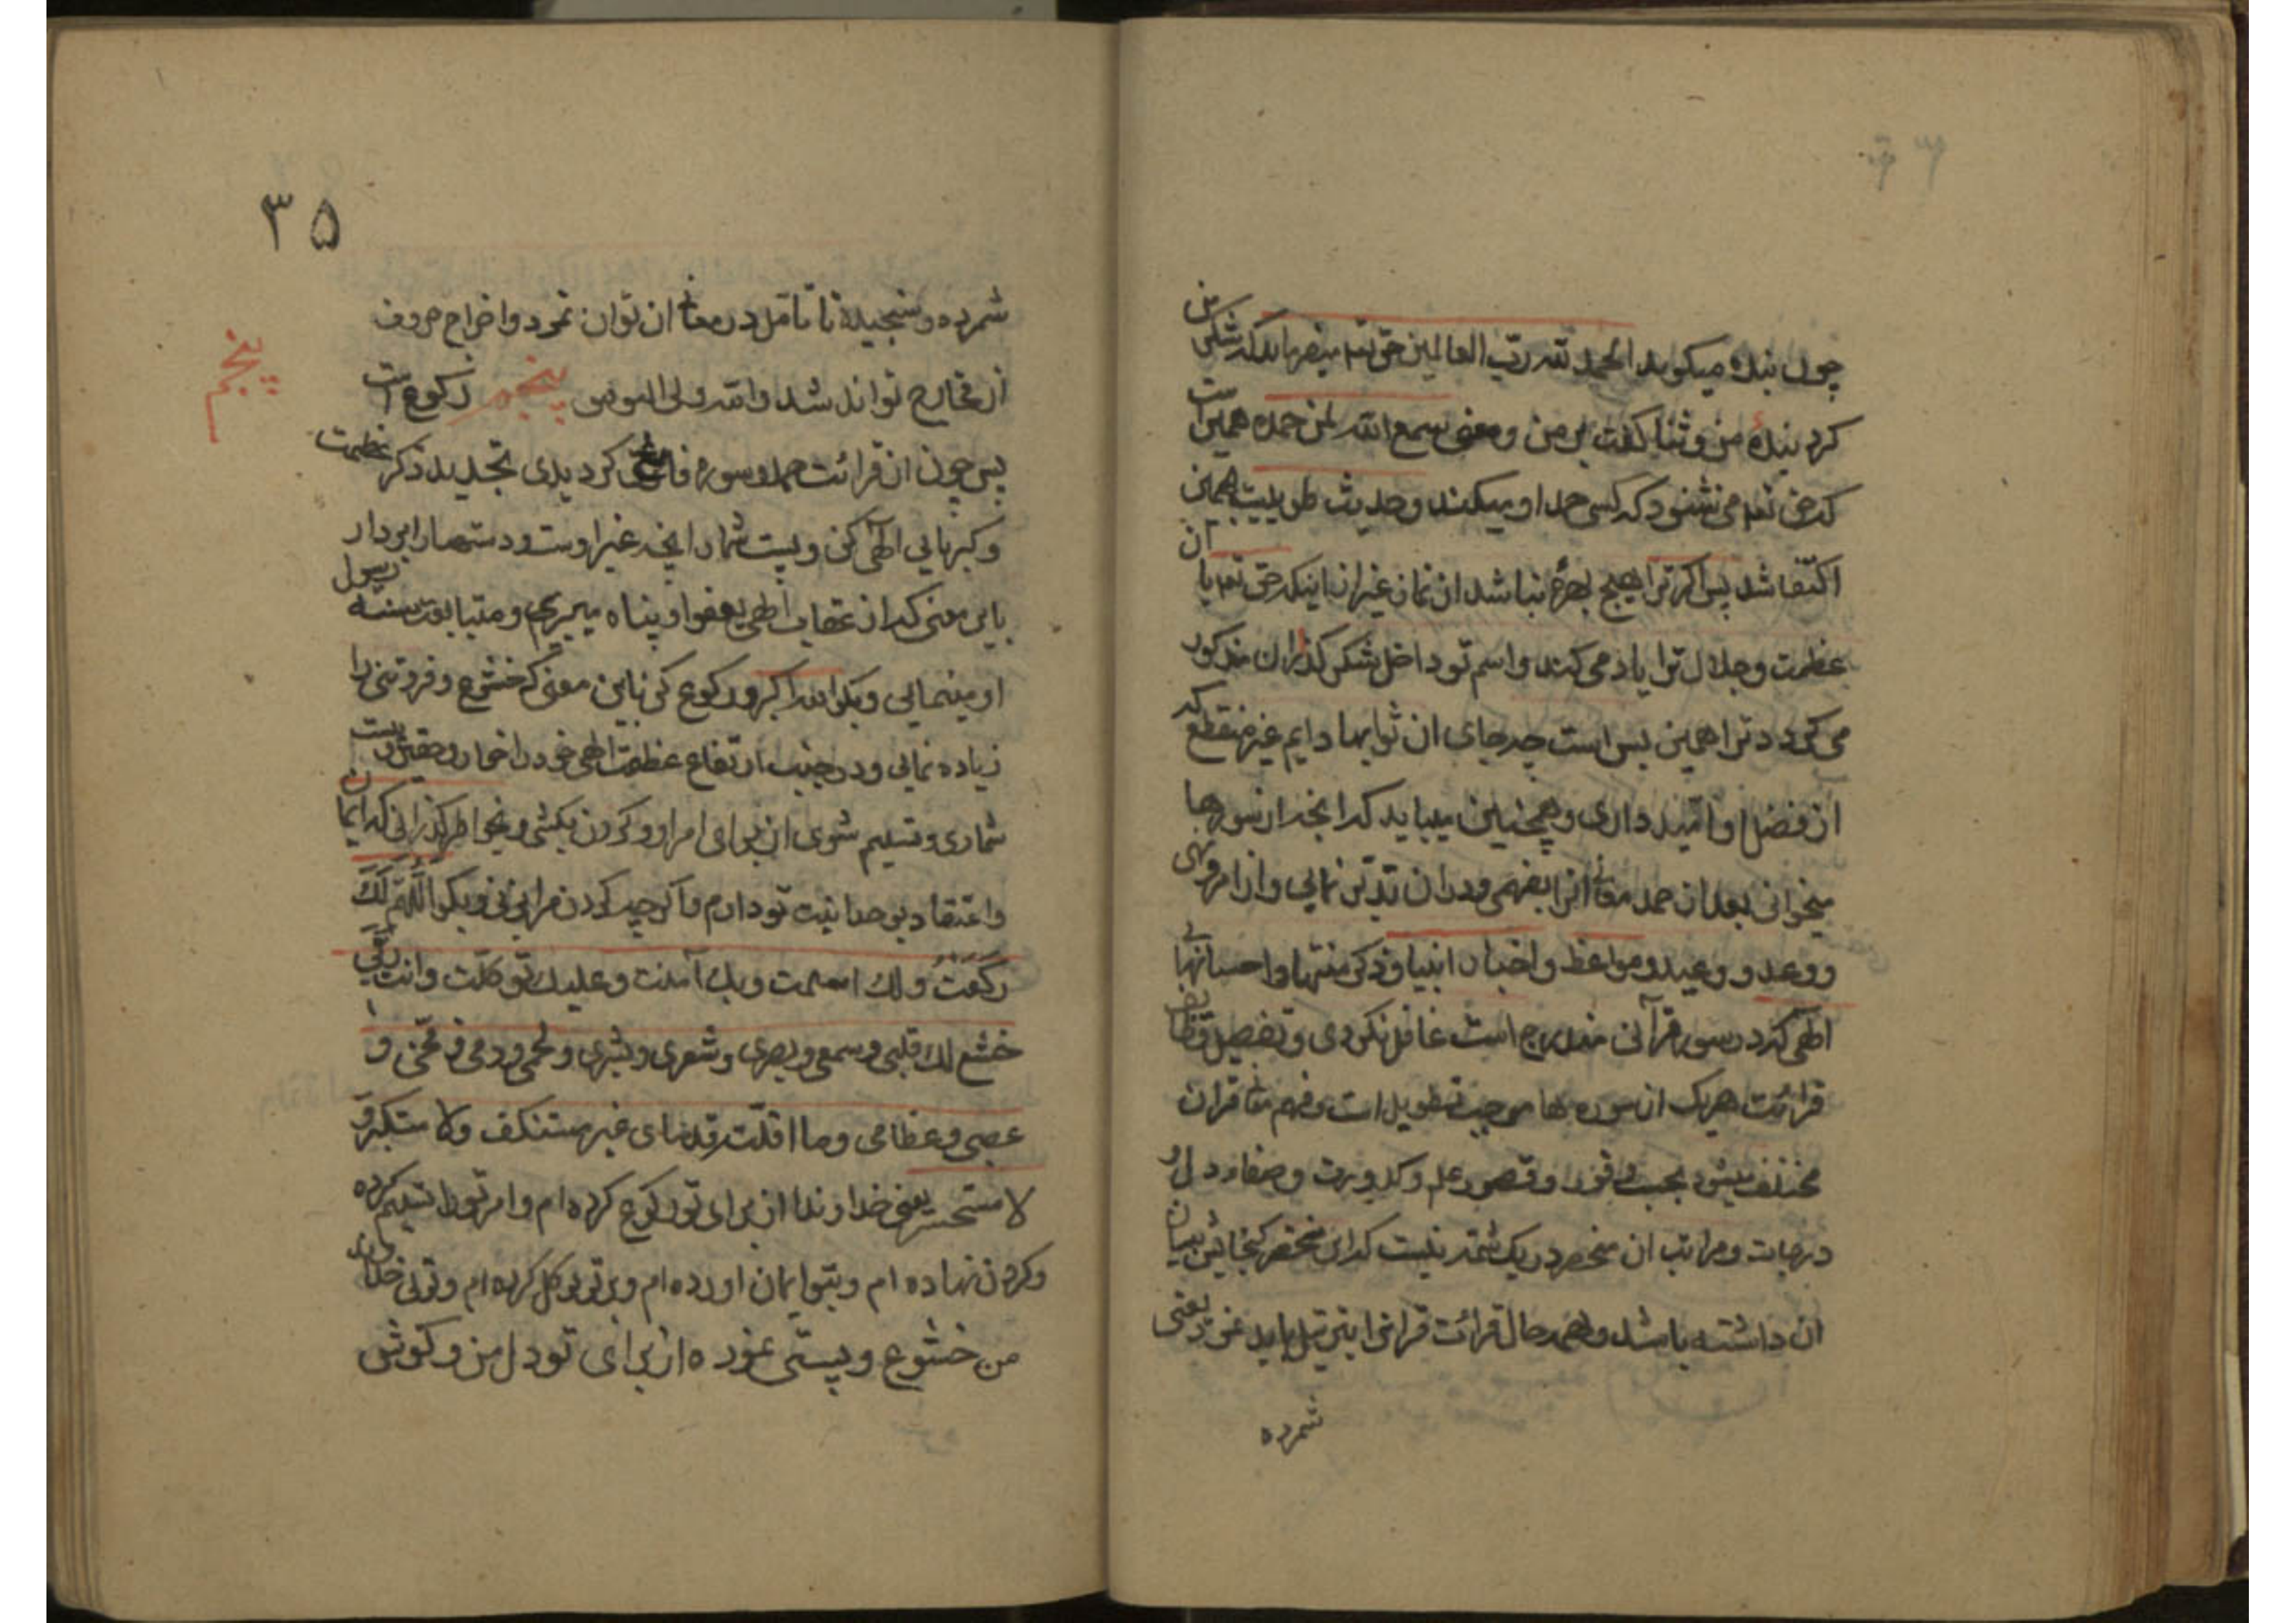 چون بنده میکوید الحمد لله رب العالمین حق تعم میفرماید که شکر من
کرد بندهٔ من و ثنا کفت بر من و معنی سمع الله لمن حمده همین است
که حق تعم می شنود که کسی حمد او میکند و حدیث طویلیست بهمین
اکتفا شد پس اکر ترا هیچ بهرهٔ نباشد از نماز غیر از اینکه حق تعم با آن
عظمت و جلال ترا یاد می کند و اسم تو داخل شکر کذاران مذکور
می کردد ترا همین بس است چه جای آن ثوابها دایم غیر منقطع که
از فضل او امید داری و همچنین میباید که آنچه از سورها
میخوانی بعد از حمد معانی آنرا بفهمی و در آن تدبر نمایی و از امر و نهی
و وعد و وعید و مواعظ و اخبار انبیا و ذکر منتها و احسانهای
الهی که در سور قرآنی مندرج است غافل نکردی و تفصیل
قرائت هریک از سوره ها موجب تطویل است و فهم معانی قرآن
مختلف میشود بحسب وفور و قصور علم و کدورت و صفاء دل و
درجات و مراتب آن منحصر در یک شمه نیست که این مختصر کنجایش بیان
آن داشته باشد و بهمه حال قرائت قرآنرا بترتیل باید نمود یعنی
شمرده
۳۵
شمرده و سنجیده تا تامل در معانی آن توان نمود و اخراج حروف
از مخارج تواند شد والله ولی التوفیق پنجم رکوع است
پنجم
پس چون از قرائت حمد و سوره فارغ کردیدی تجدید ذکر عظمت
و کبریایی الهی کن و پست شمار آنچه غیر اوست و دستها را بردار
باین معنی که از عقاب الهی بعفو او پناه میبریم و متابعت سنه رسول
او مینمایی و بکو الله اکبر و رکوع کن باین معنی که خشوع و فروتنی را
زیاده نمایی و در جنب ارتفاع عظمت الهی خود را خوار و حقیر و پست
شماری و تسلیم شوی از برای امر او و کردن بکشی و بخاطر کذرانی که ایمان
و اعتقاد بوحدانیت تو دارم و اکر چه کردن مرا بزنی و بکو اللهم لک
رکعت و لک اسلمت و بک آمنت و علیک توکلت و انت ربی
خشع لک قلبی و سمعی و بصری و شعری و بشری و لحمی و دمی و مخی و
عصبی و عظامی و ما اقلت قدمای غیر مستنکف و لا مستکبر و
لا مستحسر یعنی خداوندا از برای تو رکوع کرده ام و امر تو را تسلیم کرده
و کردن نهاده ام و بتو ایمان آورده ام و بر تو توکل کرده ام و توئی خدای
من خشوع و پستی نموده از برای تو دل من و کوش